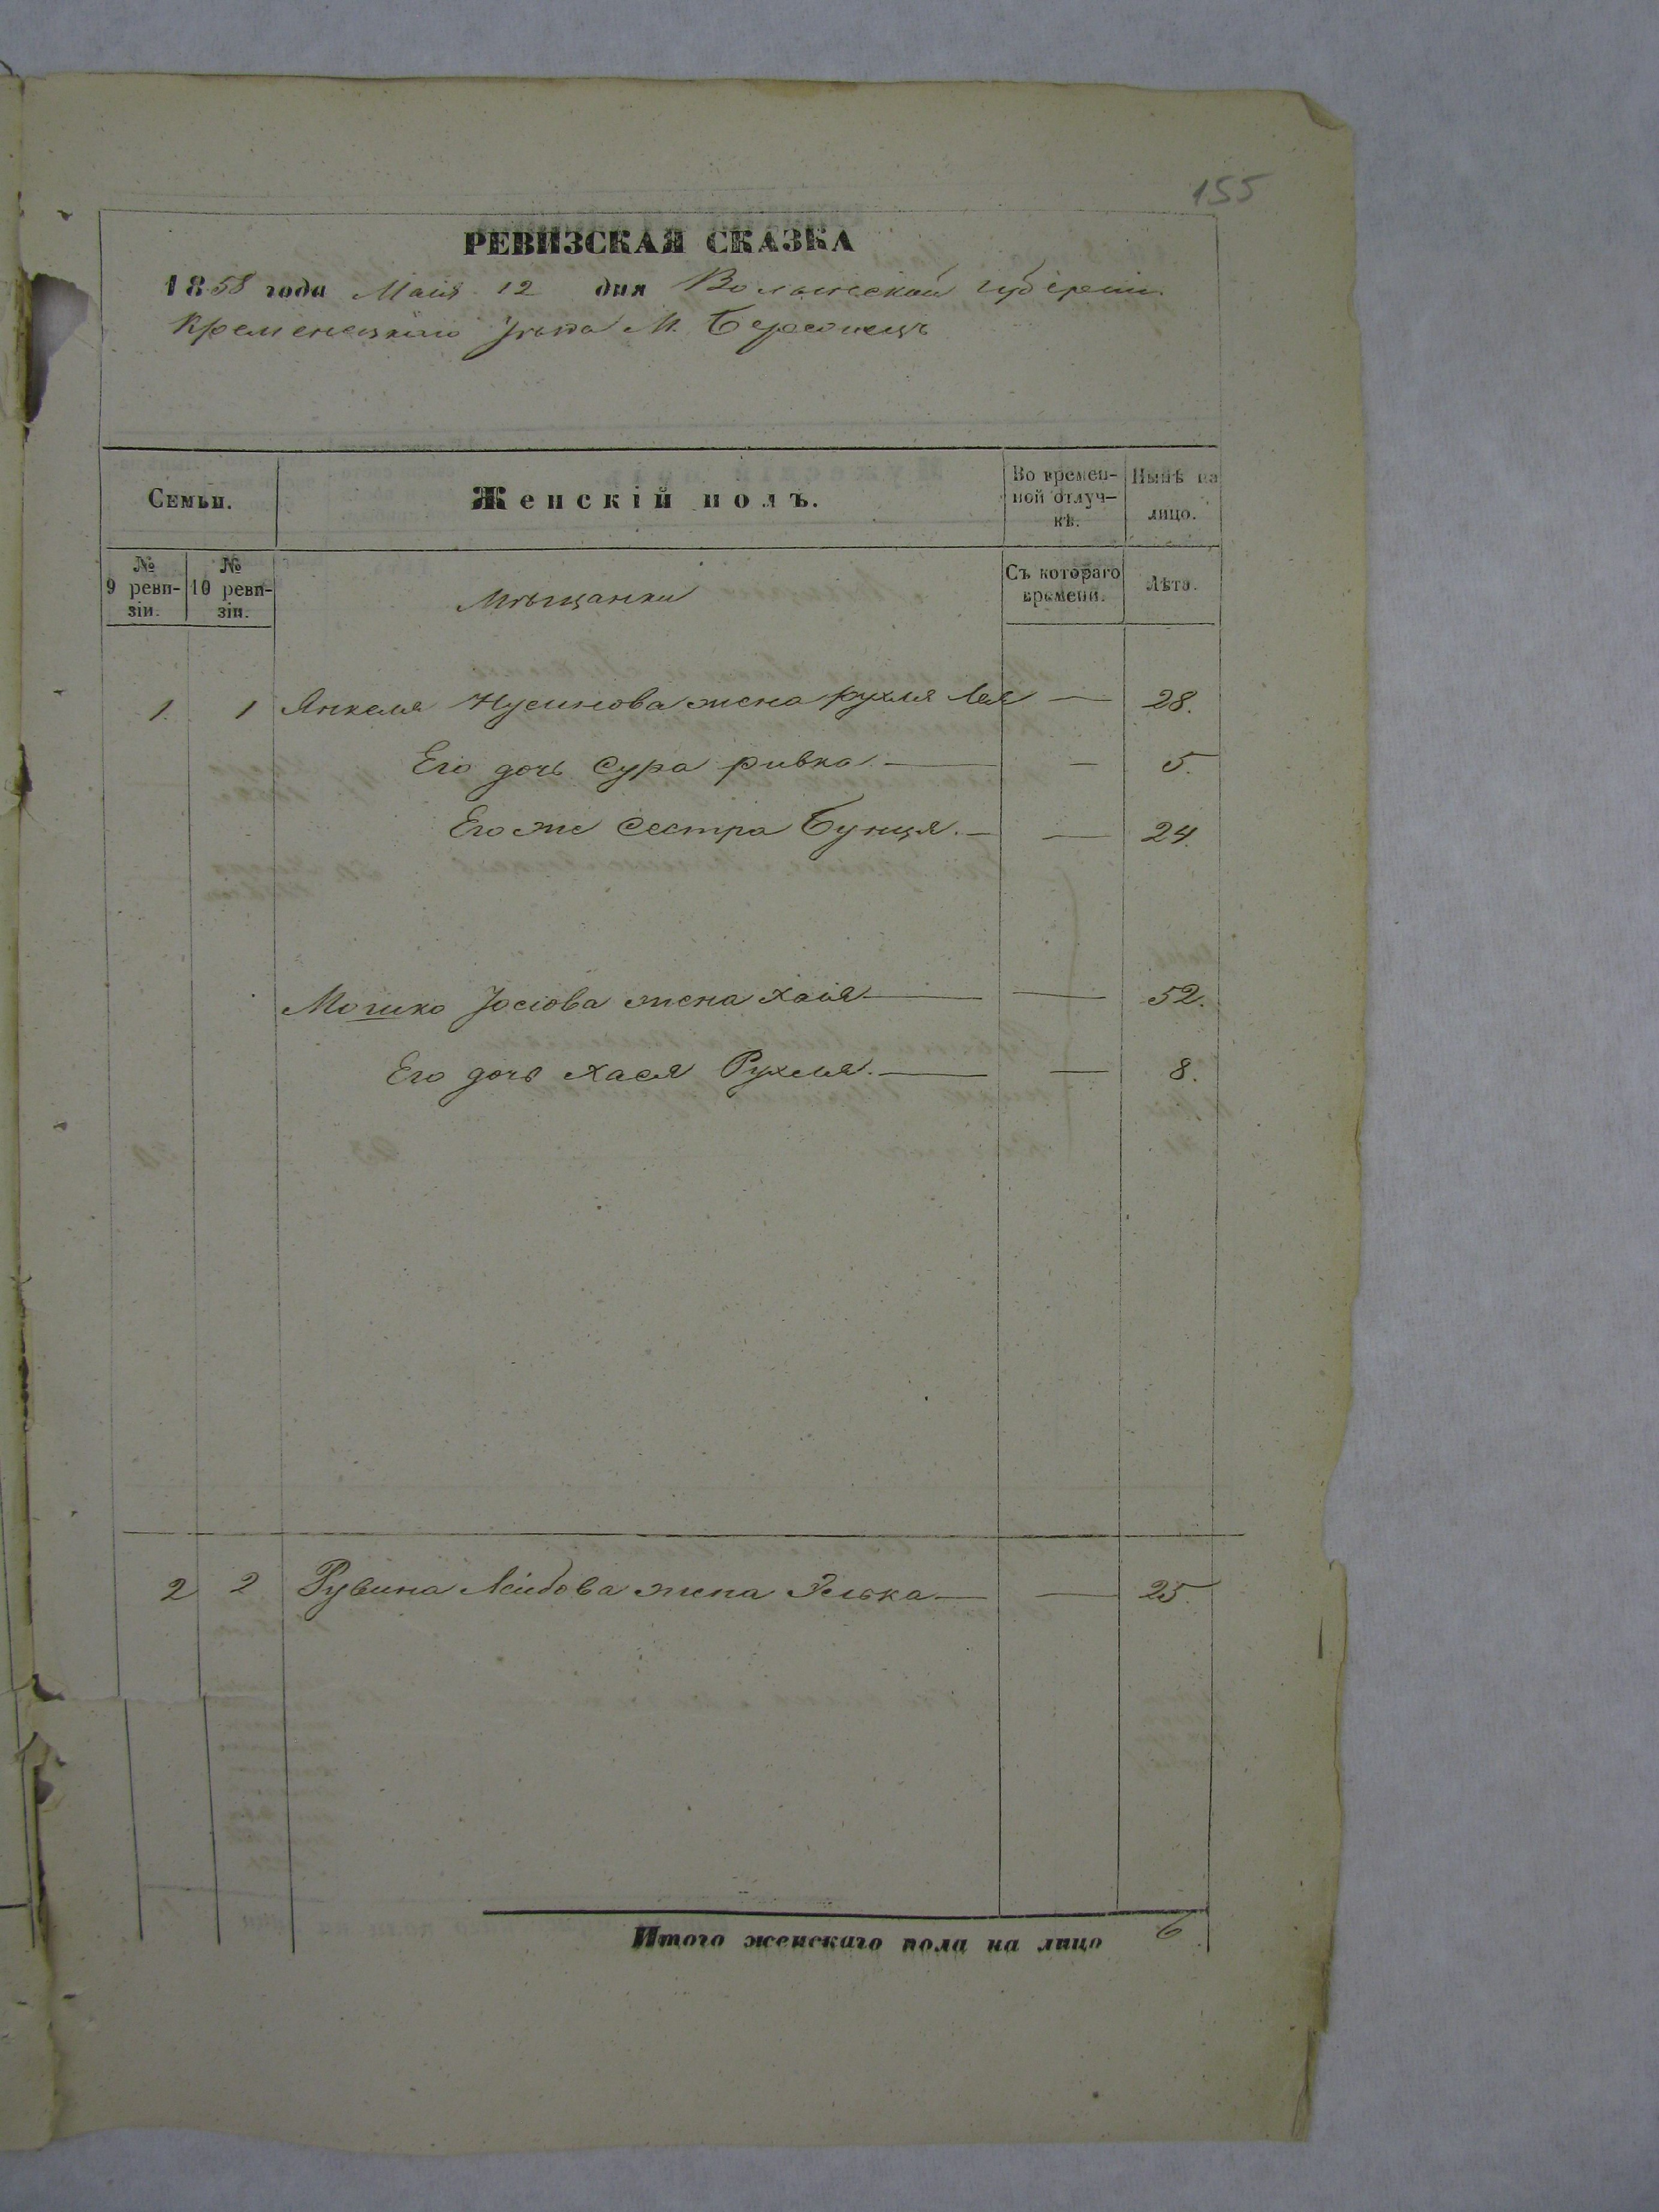 155
РЕВИЗСКАЯ СКАЗКА
1858 года Маія 12 дня Волынской губерніи
Кременецкаго уезда М. Бережецъ
Семьи. Женскій полъ. Во времен-ной отлуч-кѣ. Нынѣ на лицо.
№ 9 реви-зіи. № 10 реви-зіи. Мѣщанки Съ котораго времени. Лѣта.
1. 1 Янкеля Нусинова жена Рухля Лея — 28.
Его дочь Сура ривка. — — 5.
Его же сестра Бунця. — — 24.
Мошко Іосіова жена хаія — — 52.
Его дочь Хася Рухля. — — 8.
2 2 Рувина Лейбова жена Элька — — 25.
Итого женскаго пола на лицо 6